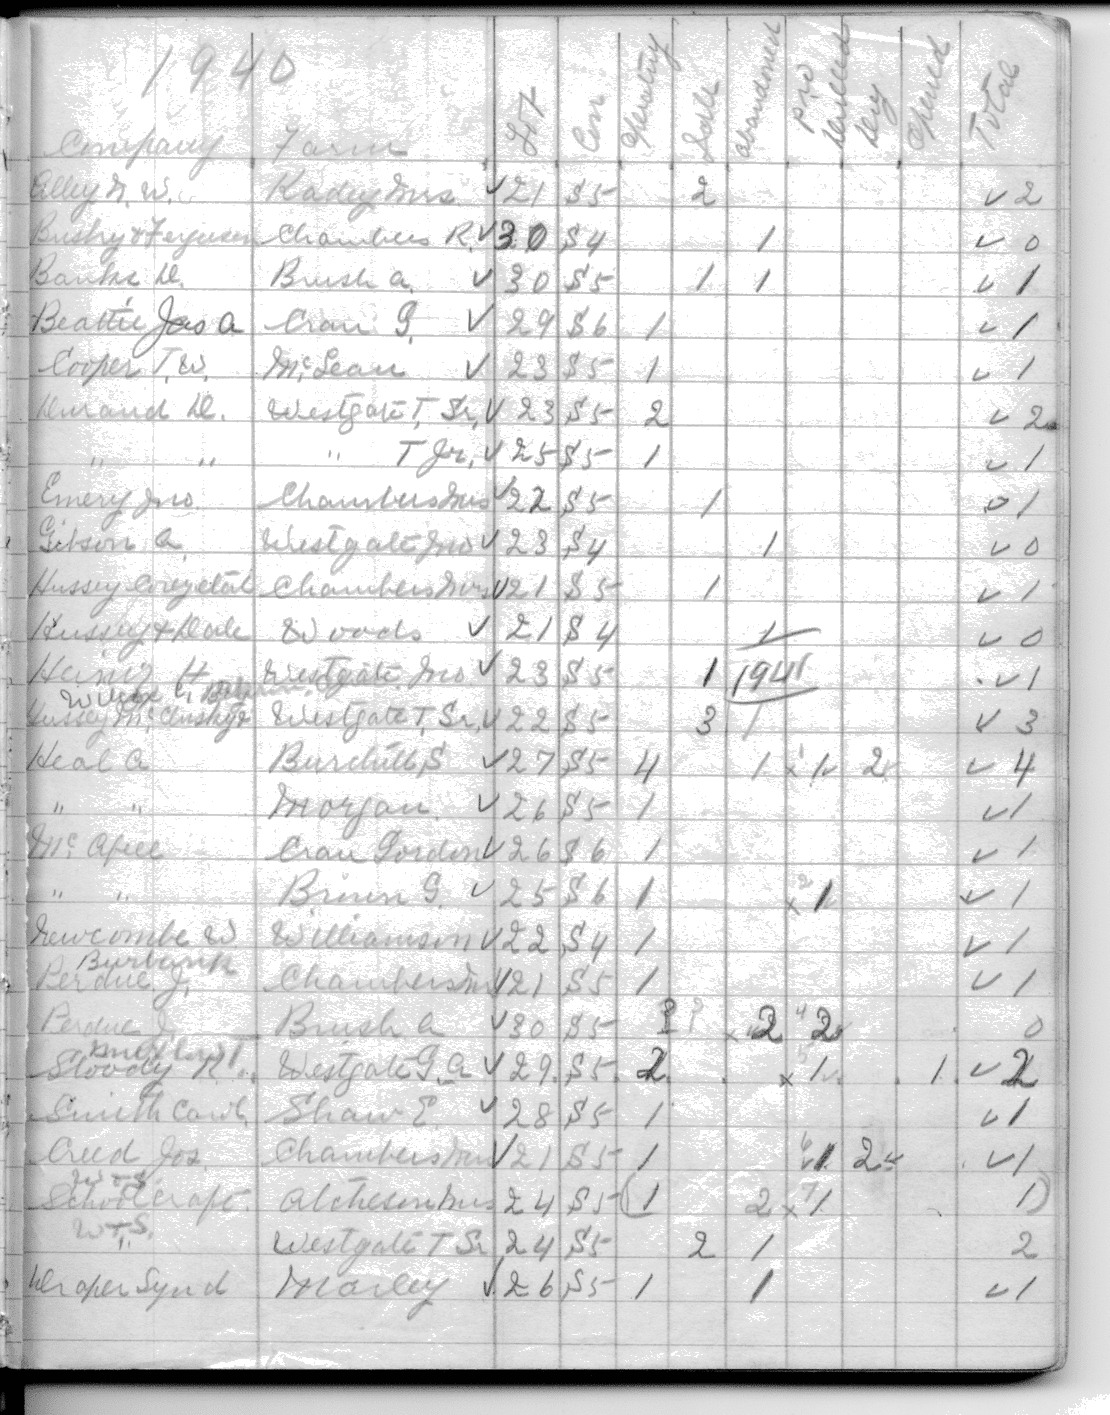 1940
Company Farm Lot Con Operating Idle abandoned pro drilled dry opened Total
Alley W. Kadey Mrs ✓ 21 S5 2 ✓ 2
Bushy & Ferguson Chambers R. ✓ 30 S4 1 ✓ 0
Banks D. Brush a. ✓ 30 S5 1 1 ✓ 1
Beattie Jas A Cran G. ✓ 29 S6 1 ✓ 1
Cooper T.W. McLean ✓ 23 S5 1 ✓ 1
Durand D. Westgate T, Sr, ✓ 23 S5 2 ✓ 2
" " " T Jr, ✓ 25 S5 1 ✓ 1
Emery Jno. Chambers Mrs ✓ 22 S5 1 1
Gibson a Westgate Jno ✓ 23 S4 1 ✓ 0
Hussey Chambers Mrs ✓ 21 S5 1 ✓ 1
Hussey & Dale Woods ✓ 21 S4 1 ✓ 0
H. Westgate Jno ✓ 23 S5 1 1941 ✓ 1
Hussey Westgate T, Sr, ✓ 22 S5 3 1 ✓ 3
Heal a Burchill S ✓ 27 S5 4 1 x 1 2 ✓ 4
" " Morgan. ✓ 26 S5 1 ✓ 1
Mc Afee Cran Gordon ✓ 26 S6 1 ✓ 1
" " Brown G. ✓ 25 S6 1 x 2 1 ✓ 1
Newcombe W Williamson ✓ 22 S4 1 ✓ 1
Burbank
Perdue J. Chambers Mrs ✓ 21 S5 1 ✓ 1
Perdue J. Brush a ✓ 30 S5 x 2 4 2 0
Stoody R. Westgate G. a ✓ 29 S5 2 x 1 1 ✓ 2
Smith Carl. Shaw E. ✓ 28 S5 1 ✓ 1
Creed Jos. Chambers Mrs ✓ 21 S5 1 6 1 2 ✓ 1
W & S.
Schoolcraft. Atcheson Mrs 24 S5 (1 2 x 7 1 1)
W & S.
" Westgate T Sr 24 S5 2 1 2
Draper Synd Morley ✓ 26 S5 1 1 ✓ 1